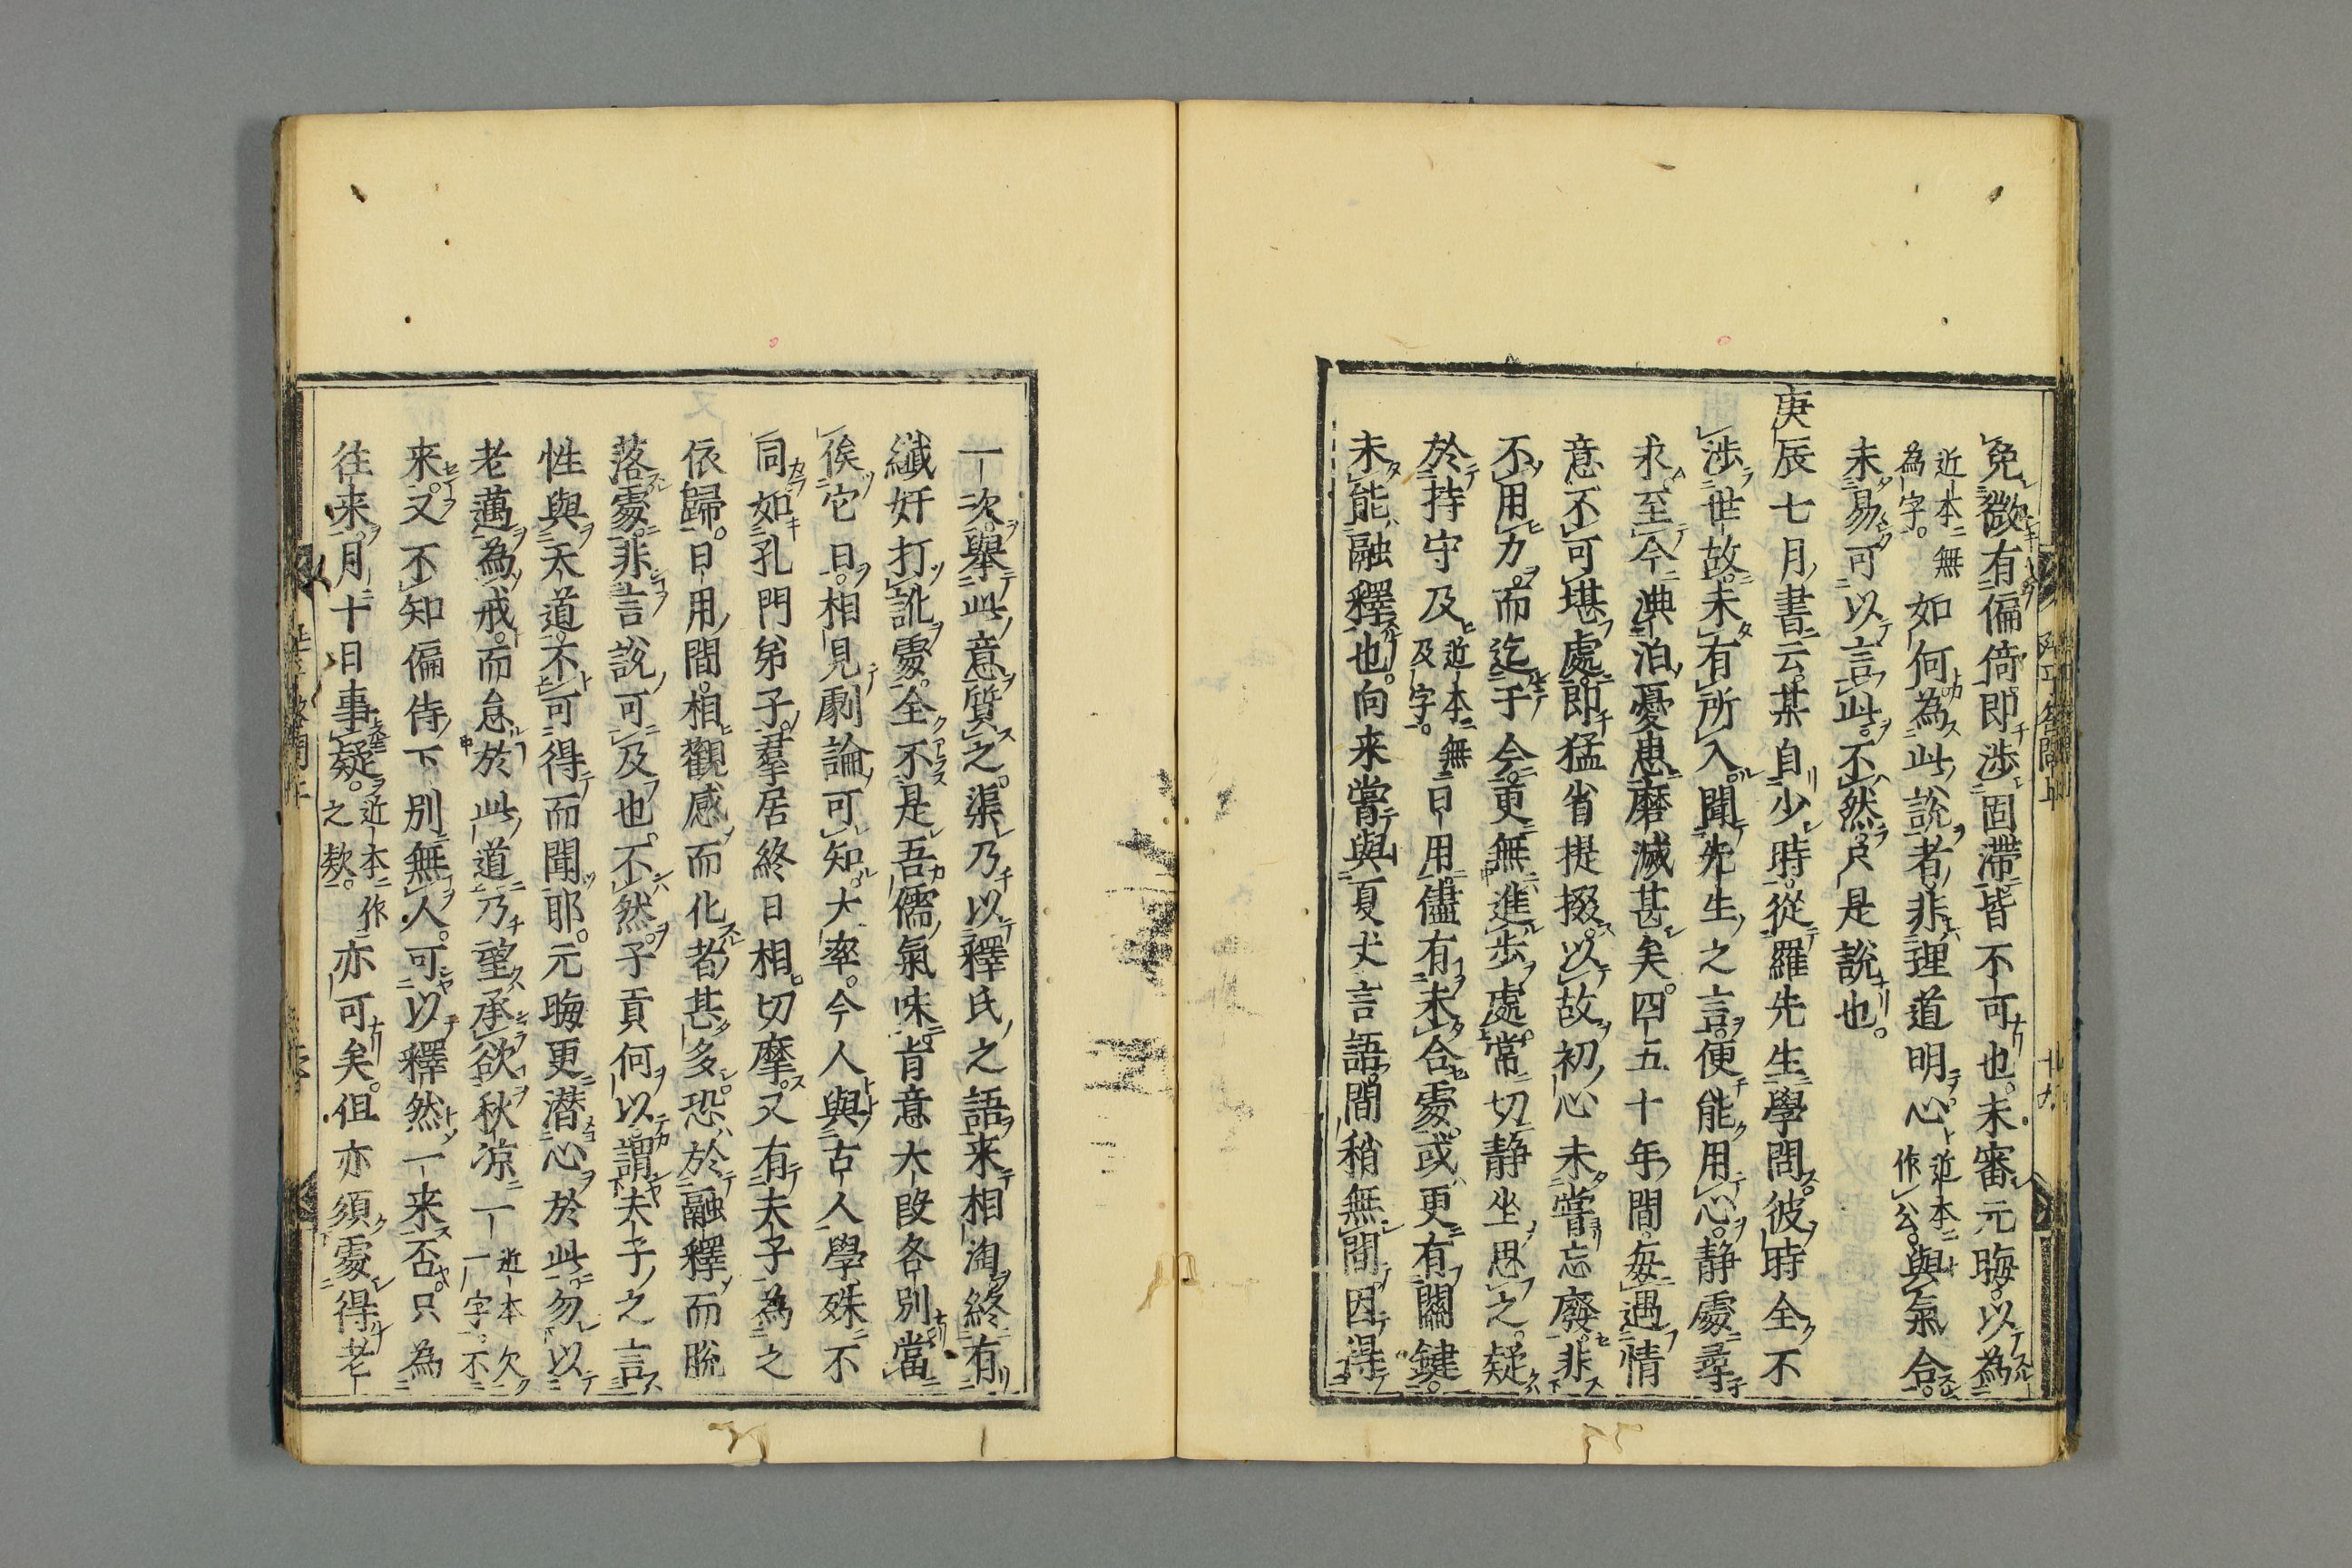 免微有偏倚即涉固滯皆不可也未審元晦以為
如何為此說者非理道明心與氣合
近本無為字
近本作公
未易可以言此不然只是說也
庚辰七月書云某自少時從羅先生學問彼時全不
涉世故未有所入聞先生之言便能用心静處尋
求至今淟泊憂患磨滅甚矣四五十年間每遇情
意不可堪處即猛省提掇以故初心未嘗忘廢非
不用力而迄于今更無進步處常切静坐思之疑
於持守及日用儘有未合處或更有關鍵
近本無及字
未能融釋也向来嘗與夏丈言語間稍無間因得
一次舉此意質之渠乃以釋氏之語来相淘終有
纖奸打訛處全不是吾儒氣味旨意大段各別當
俟它日相見劇論可知大率今人與古人學殊不
同如孔門弟子羣居終日相切摩又有夫子為之
依歸日用間相觀感而化者甚多恐於融釋而脱
落處非言說可及也不然子貢何以謂夫子之言
性與天道不可得而聞耶元晦更潜心於此勿以
老邁為戒而怠於此道乃望承欲秋凉一
近本欠一字不
来又不知偏侍下別無人可以釋然一来否只為
往来月十日事疑
近本作之欵
亦可矣但亦須處得老